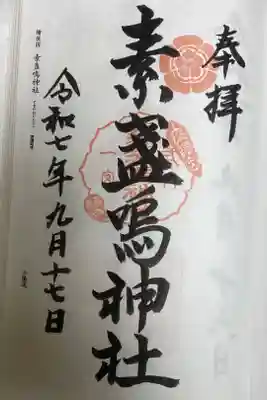 奉拝
素盞嗚神社
令和七年九月十七日
素盞嗚神社